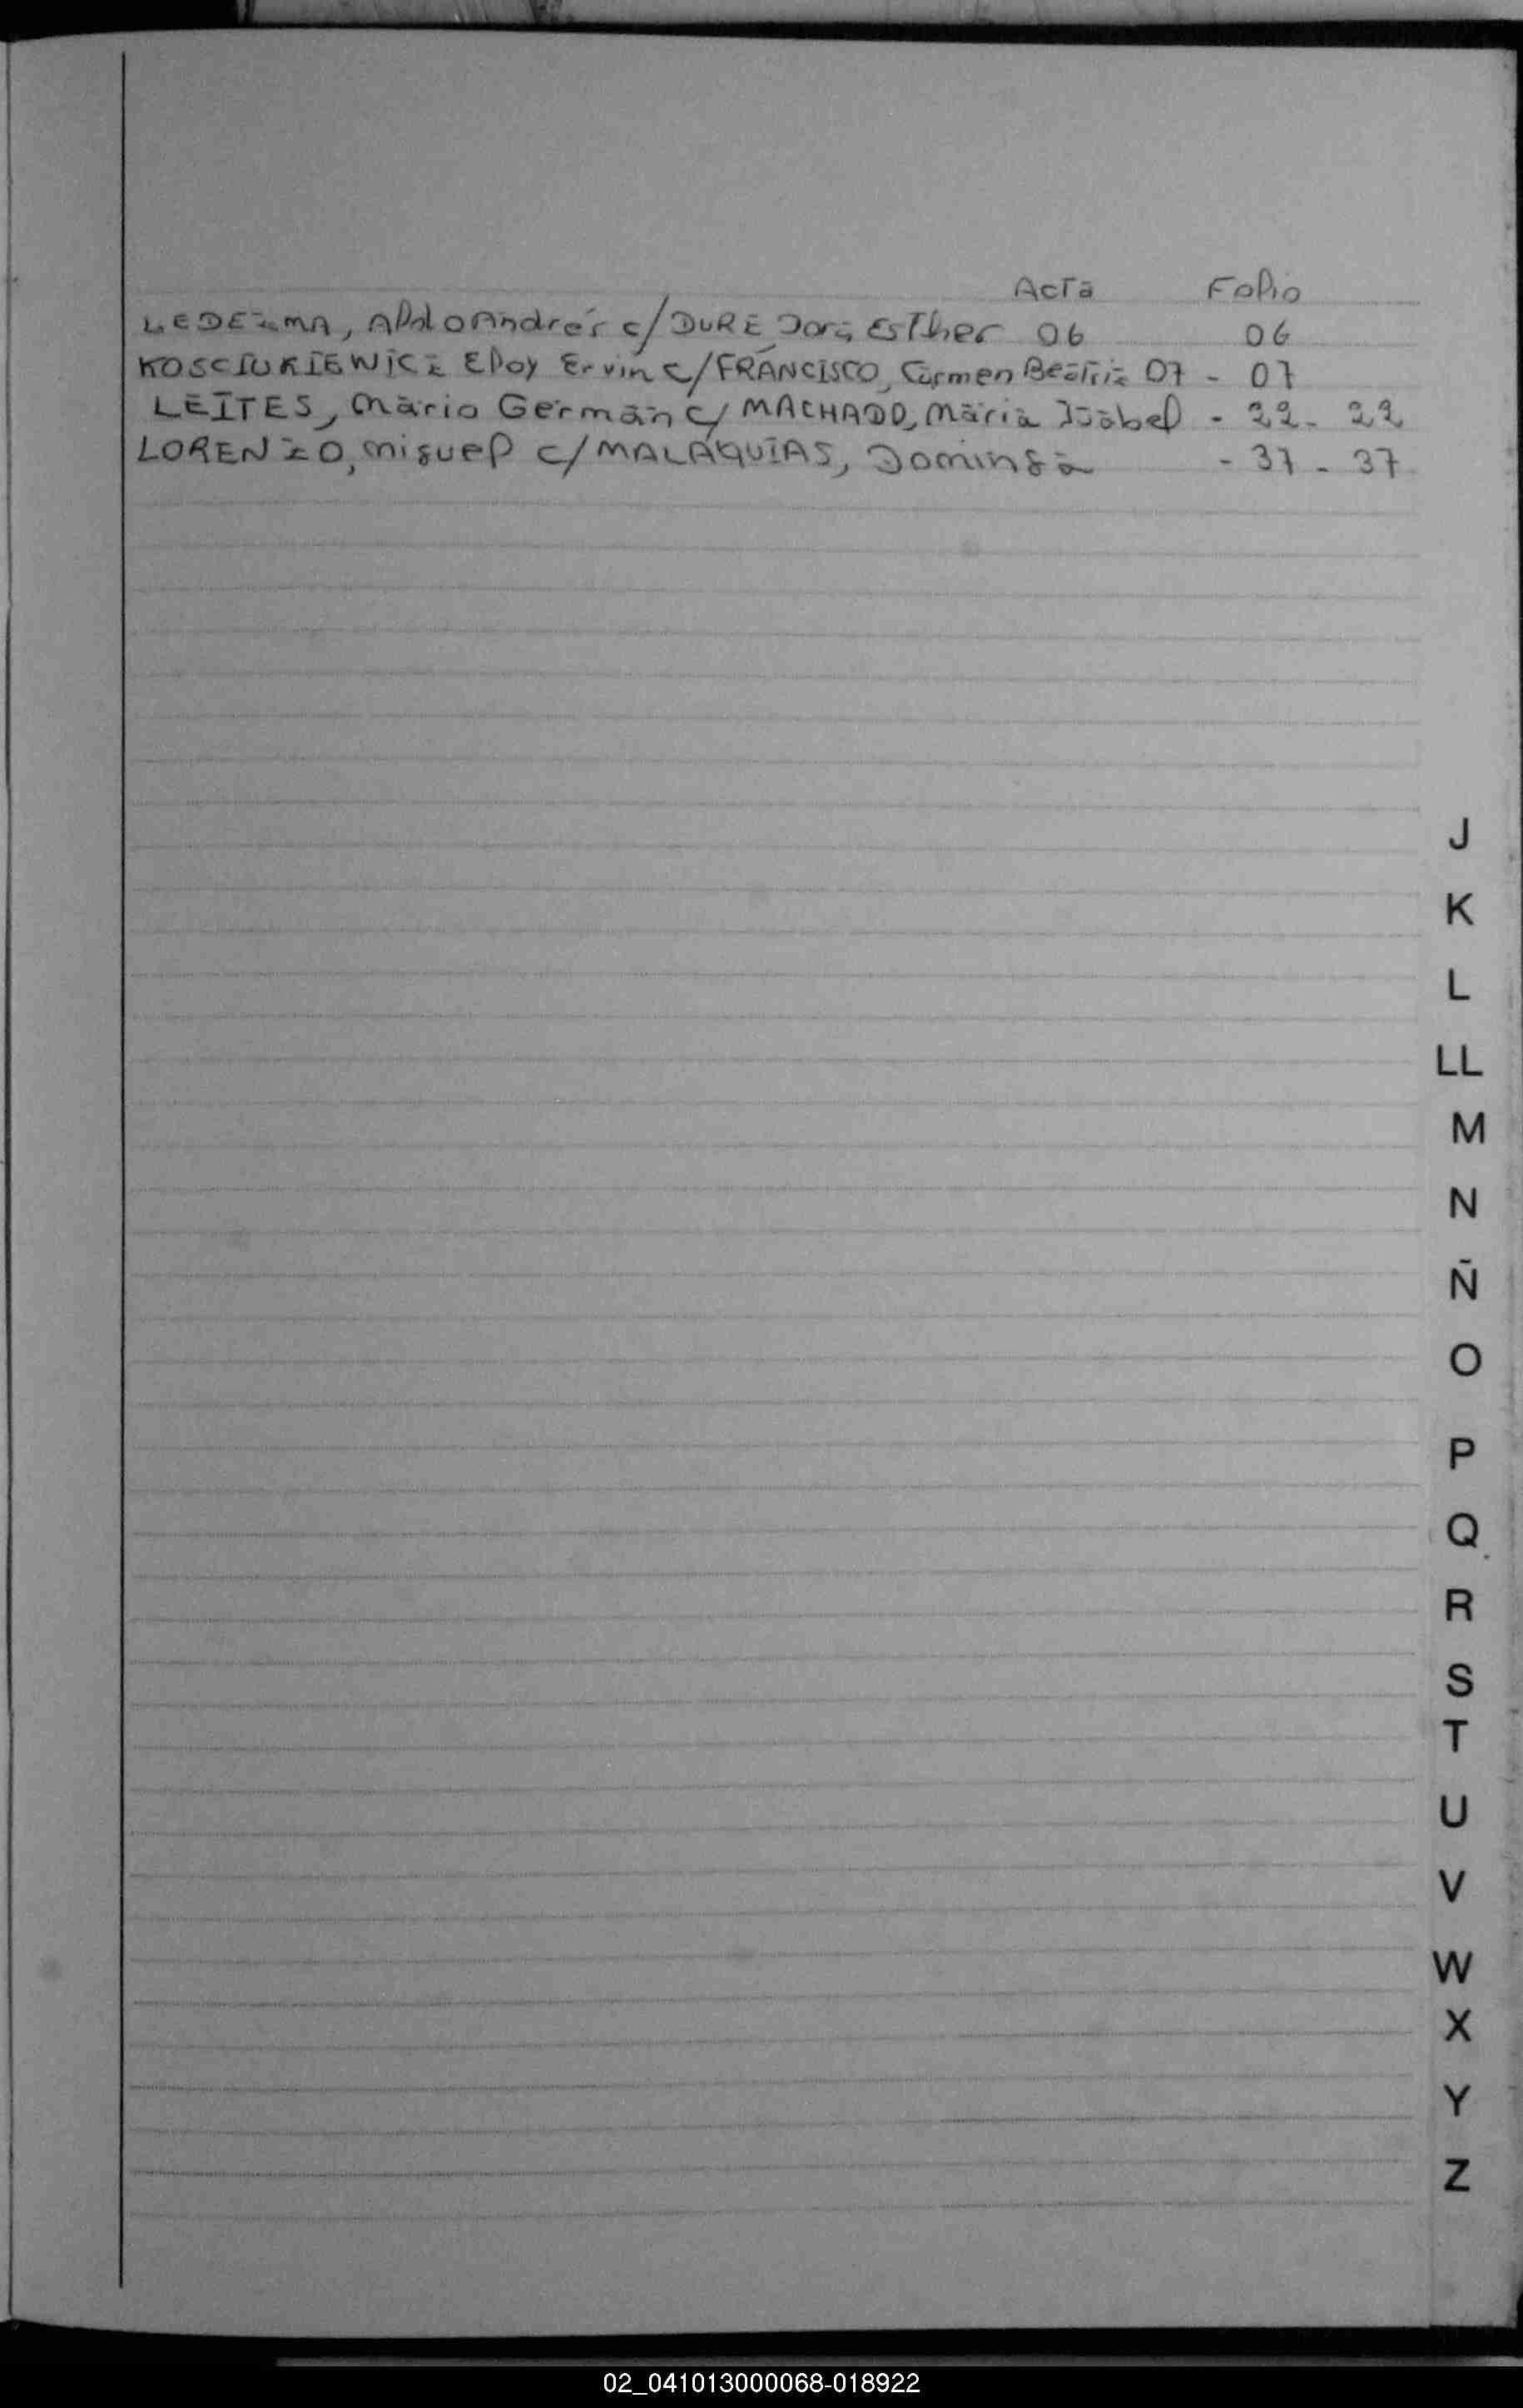 Acta Folio
LEDEZMA, Aldo Andrés c/ DURE Dora Esther 06 06
KOSCIUKIEWICZ Eloy Ervin c/ FRANCISCO, Carmen Beatriz 07 - 07
LEITES, Mario Germán c/ MACHADO, María Isabel - 22 - 22
LORENZO, Miguel c/ MALAQUIAS, Dominga - 37 - 37
J
K
L
LL
M
N
Ñ
O
P
Q
R
S
T
U
V
W
X
Y
Z
02_041013000068-018922